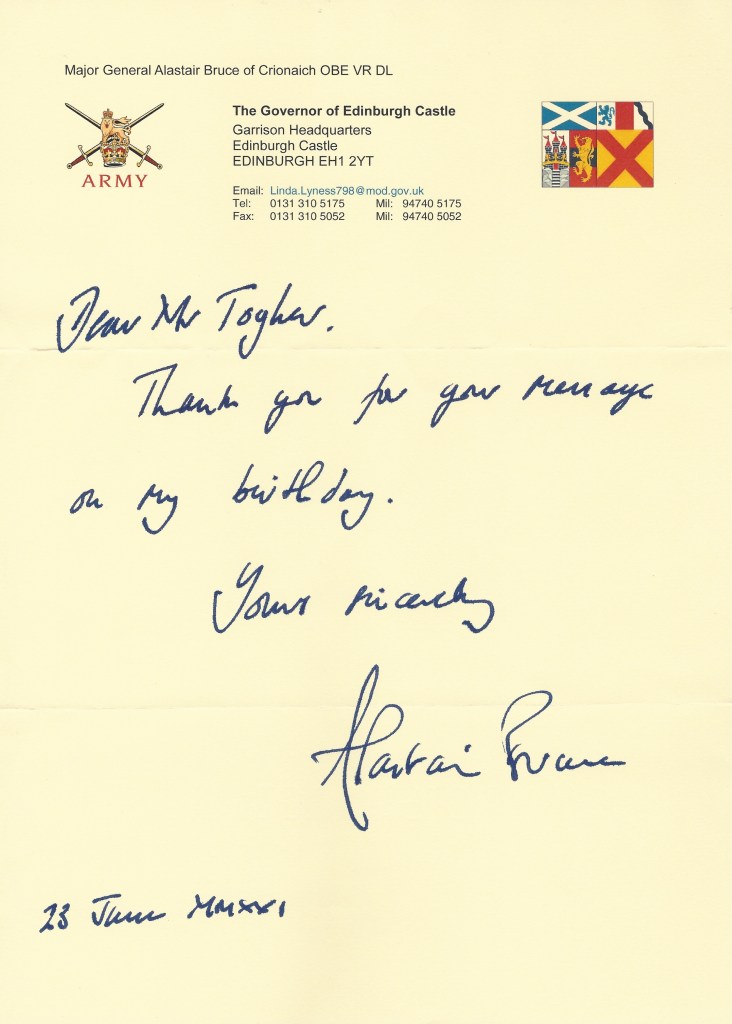 Major General Alastair Bruce of Crionaich OBE VR DL
ARMY
The Governor of Edinburgh Castle
Garrison Headquarters
Edinburgh Castle
EDINBURGH EH1 2YT
Email: Linda.Lyness798@mod.gov.uk
Tel: 0131 310 5175 Mil: 94740 5175
Fax: 0131 310 5052 Mil: 94740 5052
Dear Mr Togher.
Thank you for your message
on my birthday.
Yours sincerely
Alastair Bruce
23 June MMXXI